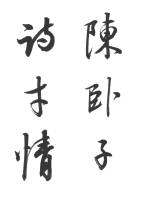 陳卧子
詩才情